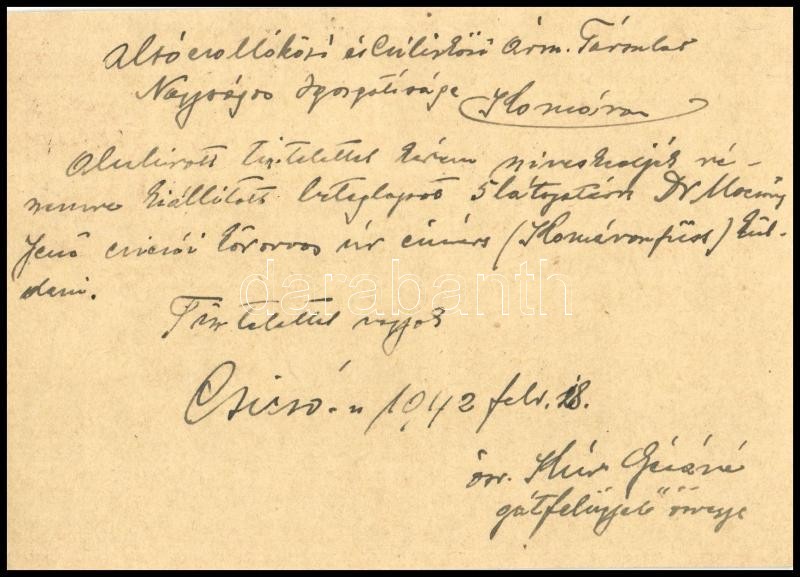 Alsócsallóközi és Csilizközi Árm. Társulat
Nagyságos Igazgatósága Komárom
Alulírott tisztelettel kérem szíveskedjék ré-
szemre kiállított beteglapot 5 látogatásra Dr
Jenő csicsói körorvos úr címére (Komáromfüss) kül-
deni.
darabanth
Tisztelettel vagyok
Csicsó-n 1942 febr. 18.
özv. Gézáné
gátfelügyelő özvegye